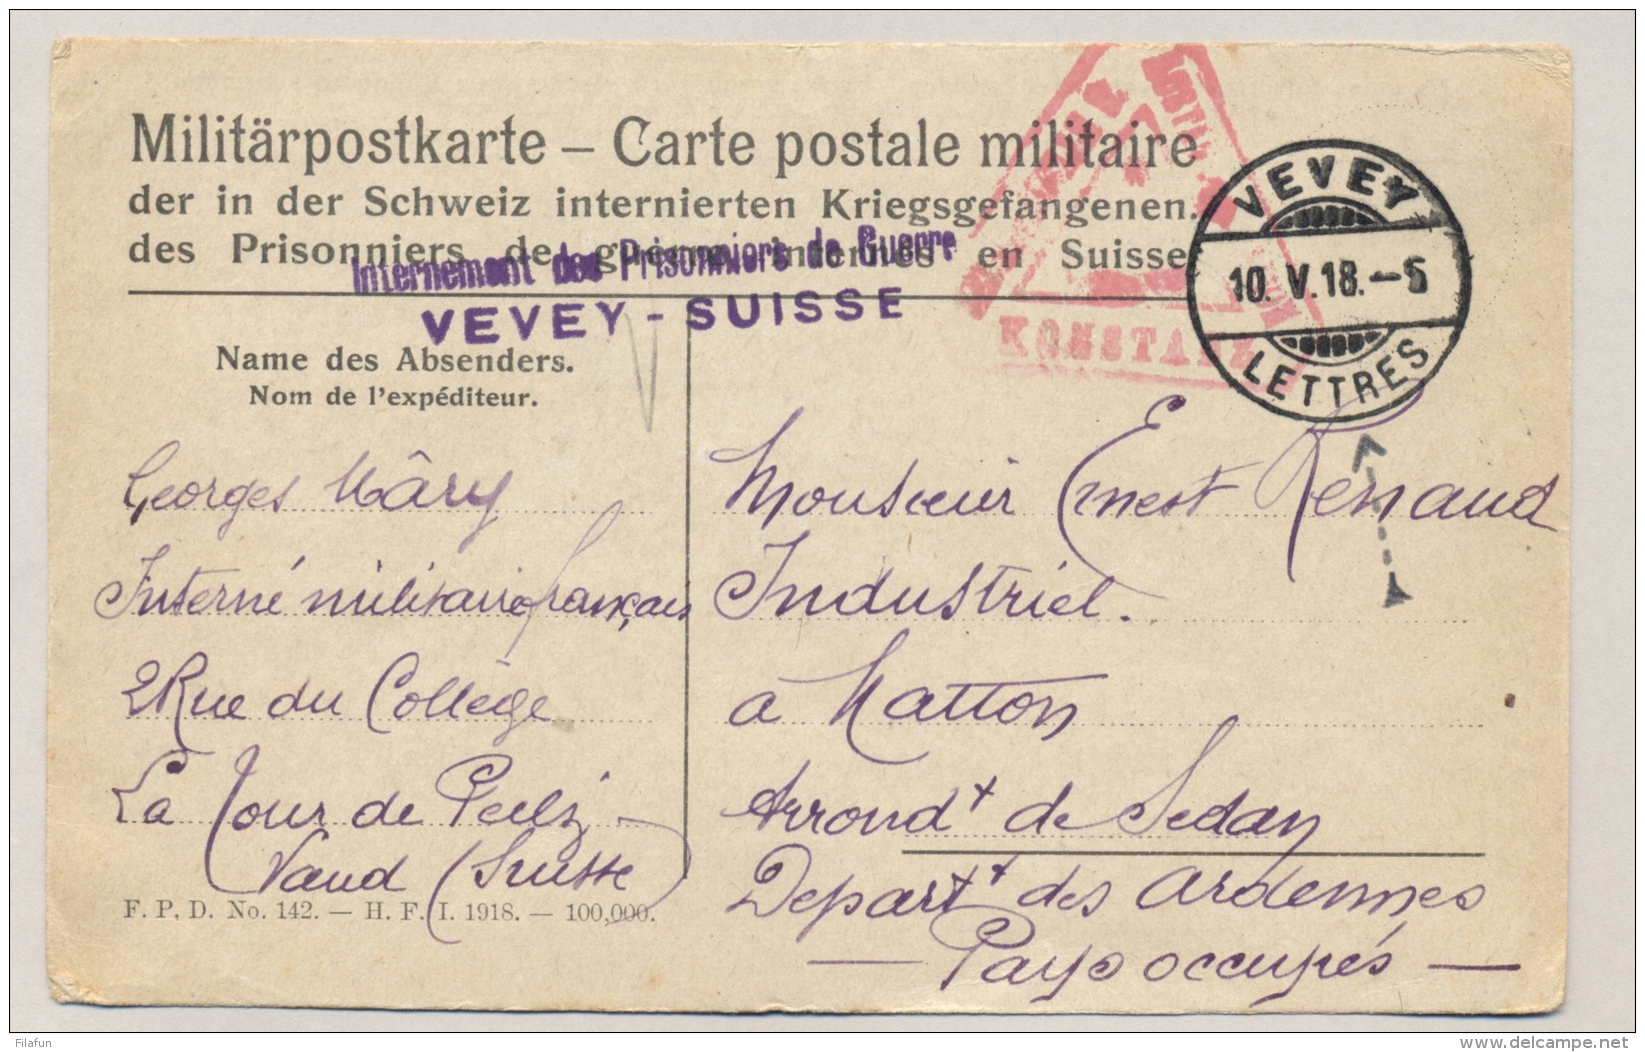 Militärpostkarte – Carte postale militaire
der in der Schweiz internierten Kriegsgefangenen.
des Prisonniers de guerre internés en Suisse
Internement des Prisonniers de Guerre
VEVEY - SUISSE
KONSTANZ
VEVEY
10. V. 18. – 5
LETTRES
Name des Absenders.
Nom de l'expéditeur.
Georges Mâry
Interné militaire français
2 Rue du Collège
La Tour de Peilz –
Vaud (Suisse)
F. P. D. No. 142. — H. F. I. 1918. — 100,000.
Monsieur Ernest Renaud
Industriel.
à Matton
Arrondt de Sedan
Departt des Ardennes
— Pays occupés —
Filafun
www.delcampe.net